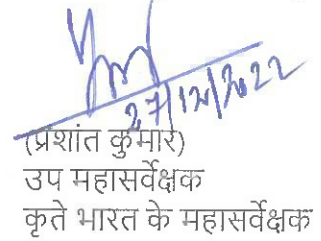 27/12/2022
(प्रशांत कुमार)
उप महासर्वेक्षक
कृते भारत के महासर्वेक्षक